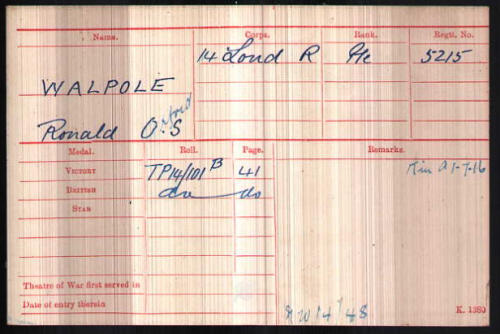 Name. Corps. Rank. Regtl. No.
14 Lond R Pte 5215
WALPOLE
Orford
Ronald O.S
Medal. Roll. Page. Remarks.
VICTORY TP14/101B 41 K in A 1-7-16
BRITISH do do
STAR
Theatre of War first served in
Date of entry therein
K. 1380